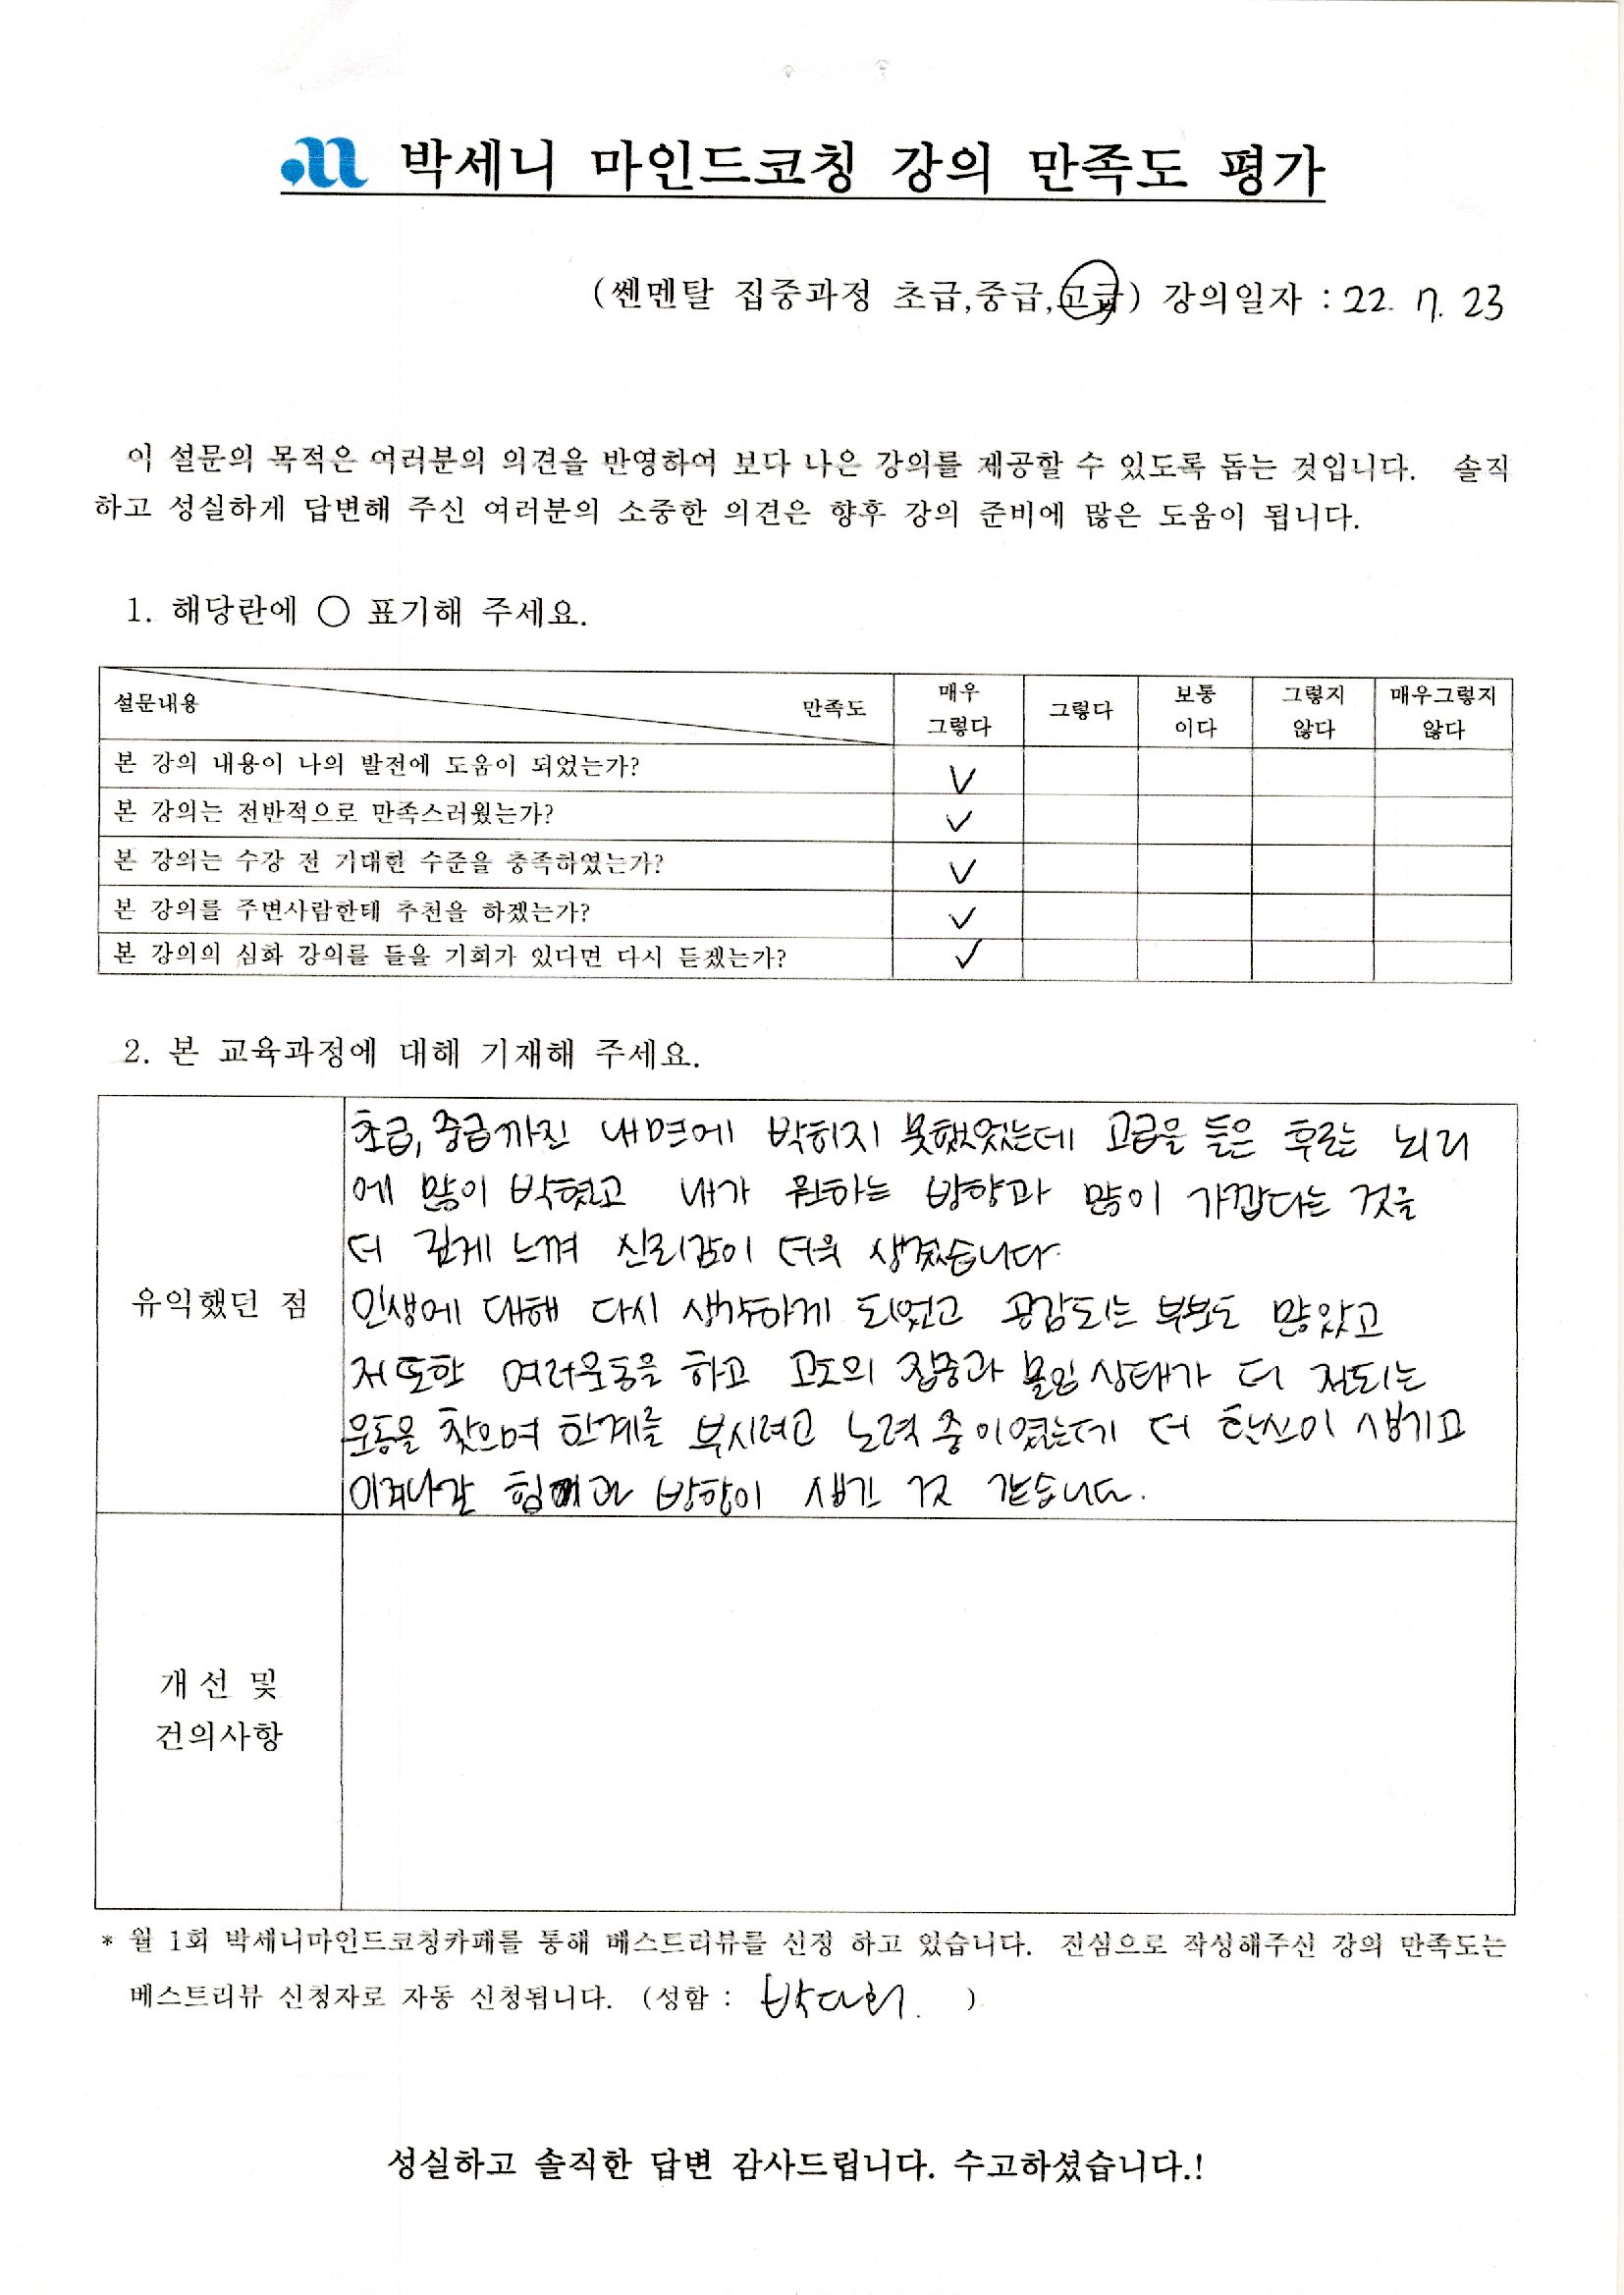 박세니 마인드코칭 강의 만족도 평가
(쎈멘탈 집중과정 초급,중급,고급) 강의일자 : 22. 7. 23
이 설문의 목적은 여러분의 의견을 반영하여 보다 나은 강의를 제공할 수 있도록 돕는 것입니다. 솔직
하고 성실하게 답변해 주신 여러분의 소중한 의견은 향후 강의 준비에 많은 도움이 됩니다.
1. 해당란에 ○ 표기해 주세요.
설문내용 만족도 매우 그렇다 그렇다 보통 이다 그렇지 않다 매우그렇지 않다
본 강의 내용이 나의 발전에 도움이 되었는가? ✓
본 강의는 전반적으로 만족스러웠는가? ✓
본 강의는 수강 전 기대현 수준을 충족하였는가? ✓
본 강의를 주변사람한태 추천을 하겠는가? ✓
본 강의의 심화 강의를 들을 기회가 있다면 다시 듣겠는가? ✓
2. 본 교육과정에 대해 기재해 주세요.
유익했던 점
초급, 중급까진 내면에 박히지 못했었는데 고급을 들은 후로는 뇌리
에 많이 박혔고 내가 원하는 방향과 많이 가깝다는 것을
더 깊게 느껴 신뢰감이 더욱 생겼습니다.
인생에 대해 다시 생각하게 되었고 공감되는 부분도 많았고
저 또한 여러운동을 하고 고도의 집중과 몰입 상태가 더 잘되는
운동을 찾으며 한계를 부시려고 노력 중이였는데 더 확신이 생기고
이겨나갈 힘과 방향이 생긴 것 같습니다.
개선 및
건의사항
* 월 1회 박세니마인드코칭카페를 통해 베스트리뷰를 선정 하고 있습니다. 진심으로 작성해주신 강의 만족도는
베스트리뷰 신청자로 자동 신청됩니다. (성함 : 박다희. )
성실하고 솔직한 답변 감사드립니다. 수고하셨습니다.!